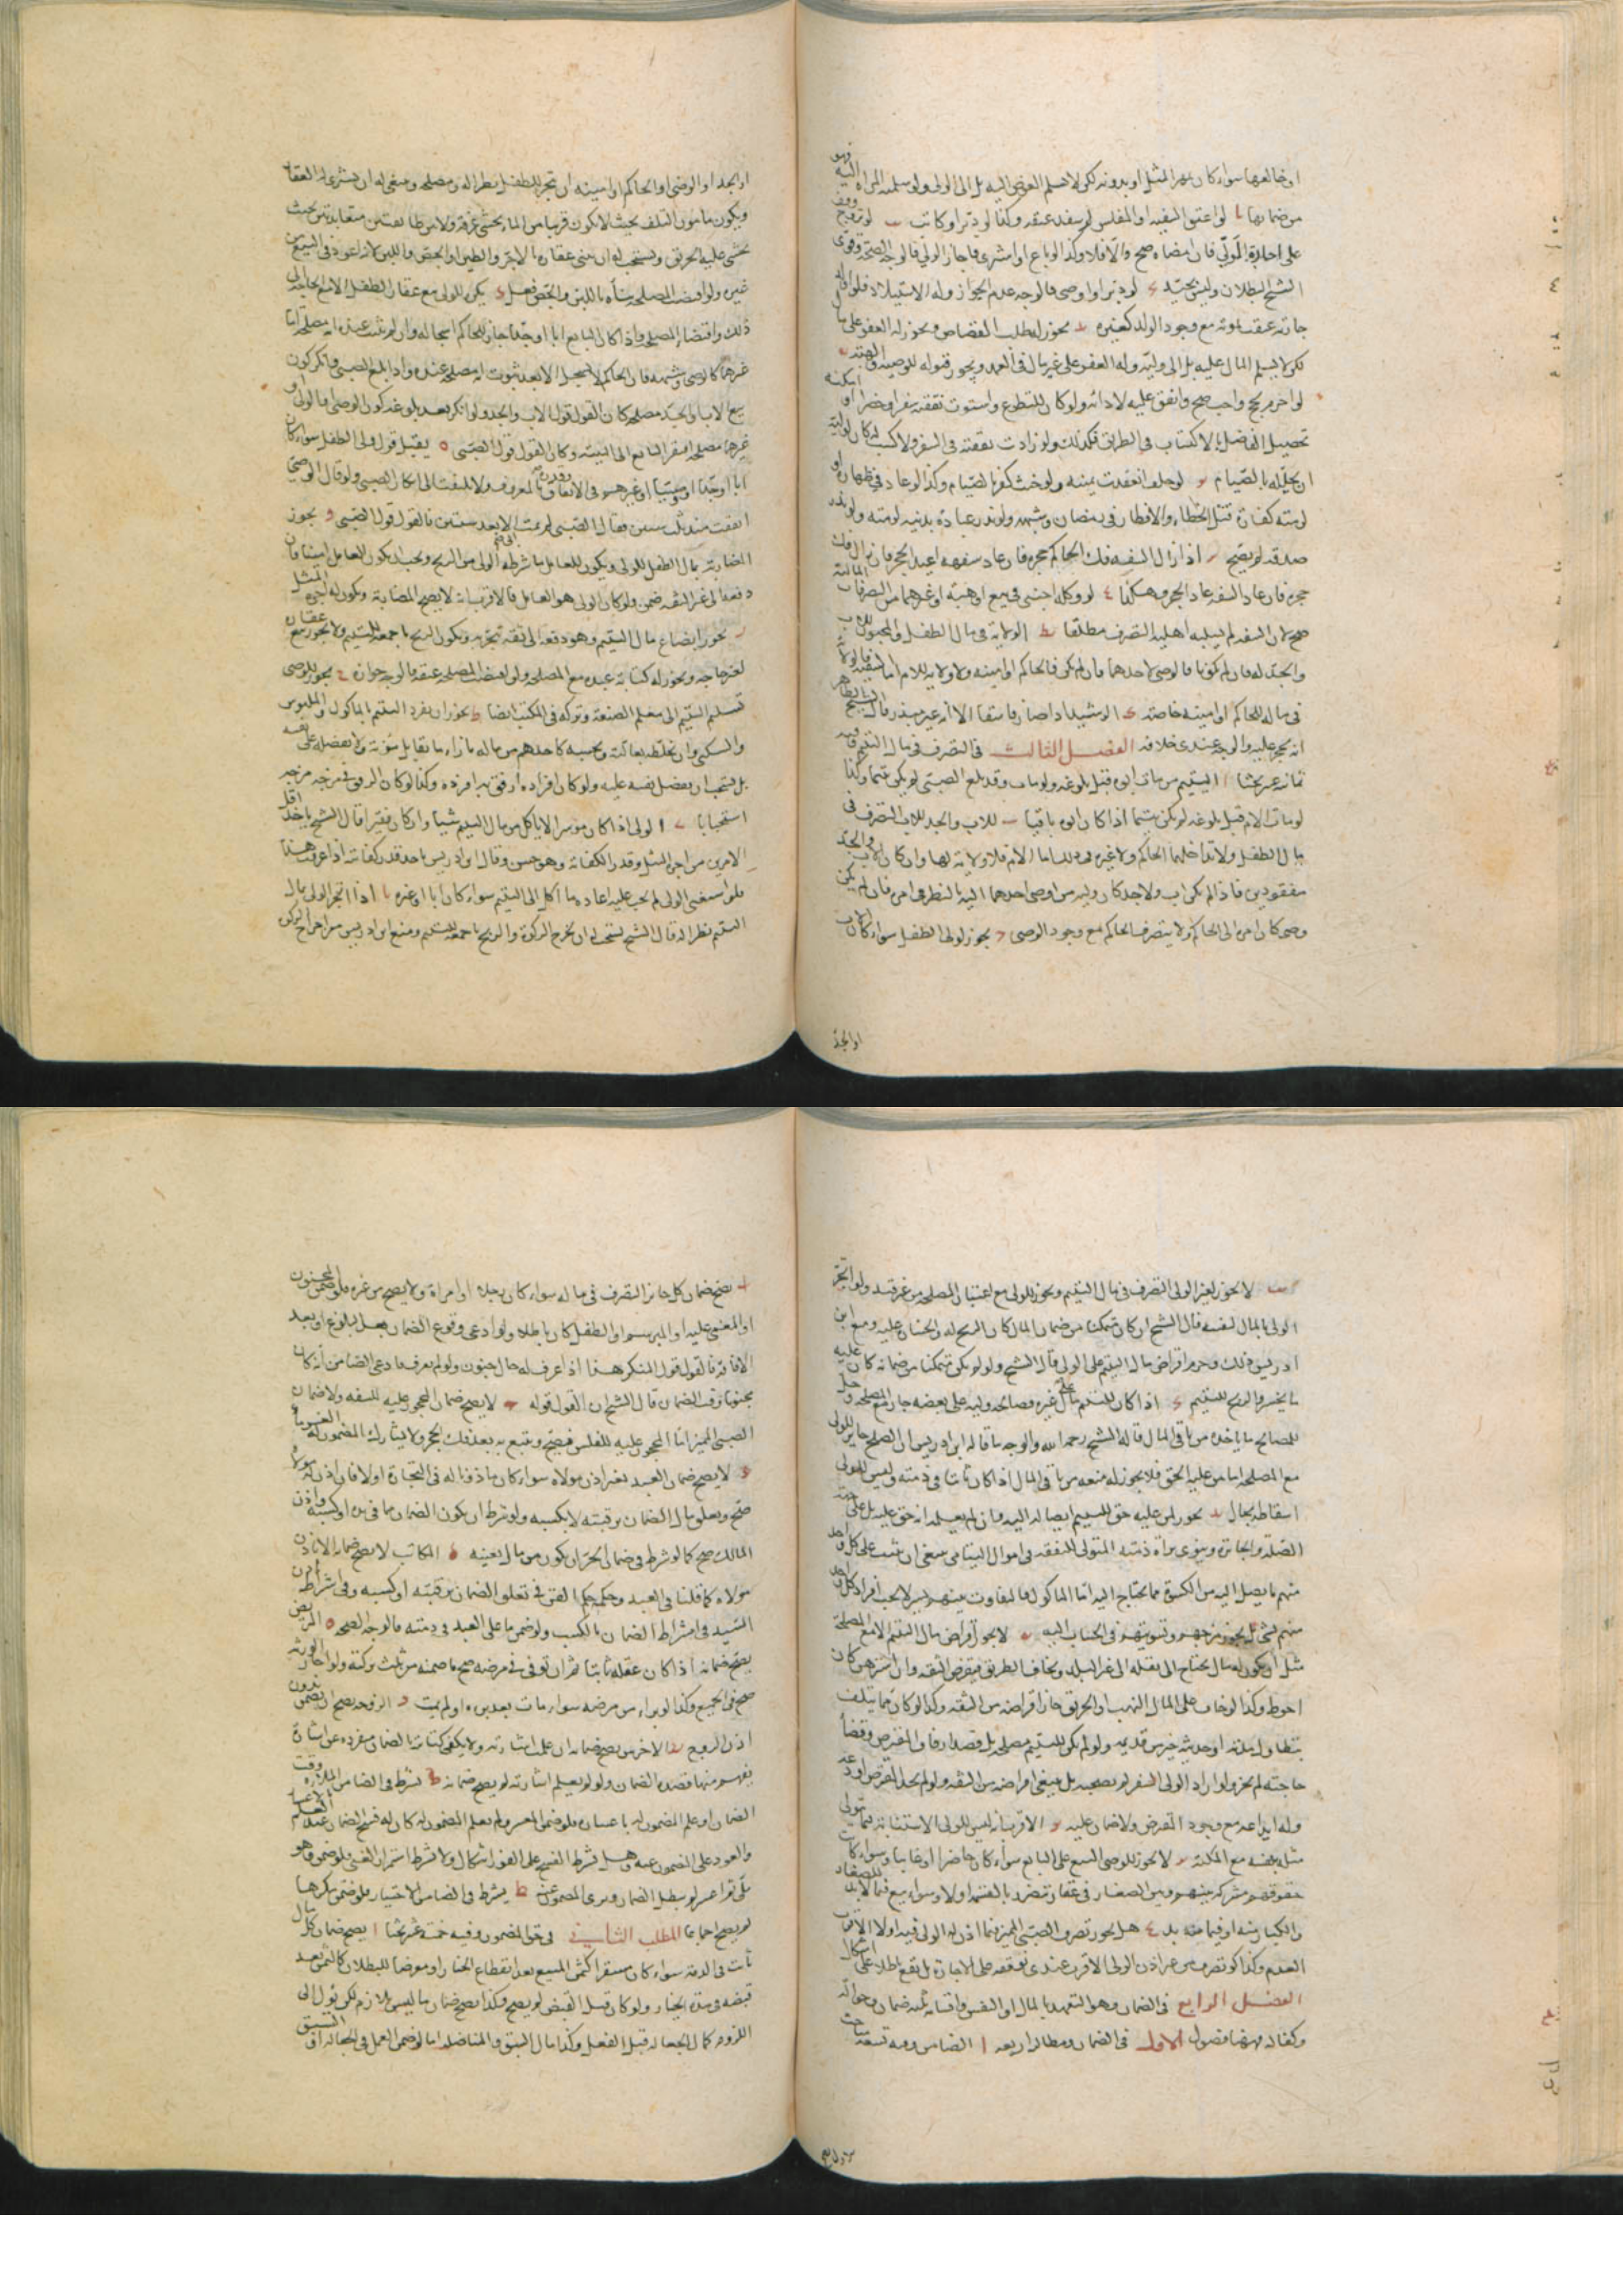 او خالعها سواء كان بمهر المثل او بدونه لكن لا يسلم العوض اليه بل الى الولى ولو سلمته المراة اليه فهو
من ضمانها لو اعتق السفيه او المفلس لم ينفذ عتقه وكذا لو دبر او كاتب لو تزوج وقف
على اجازة الولى فان امضاه صح والا فلا وكذا لو باع او اشترى فاجاز الولى فالوجه الصحة وقوى
الشيخ البطلان وليس بجيد لو دبر او اوصى فالوجه عدم الجواز وله الاستيلاد فلو
جاريته عتقت بموته مع وجود الولد كغيره يجوز له طلب القصاص ويجوز له العفو على مال
لكن لا يسلم المال اليه بل الى وليه وله العفو على غير مال فى العمد ويجوز قبوله للوصية والهبة
لو احرم بحج واجب صح وانفق عليه لادائه ولو كان للتطوع واستوت نفقته سفرا وحضرا او امكنه
تحصيل الفاضل بالاكتساب فى الطريق فكذلك ولو زادت نفقته فى السفر ولا كسب له كان لوليه
ان يحلله بالصيام لو حلف انعقدت يمينه ولو حنث كفر بالصيام وكذا لو عاد فى ظهاره او
لزمته كفارة قتل الخطاء والافطار فى رمضان وشبهه ولو نذر عبادة بدنية لزمته ولو نذر
صدقة لم يصح اذا زال السفه فك الحاكم حجره فان عاد سفهه اعيد الحجر فان زال فك
حجره فان عاد السفه عاد الحجر وهكذا لو وكله اجنبى فى بيع او هبة او غيرهما من التصرفات المالية
صح لان السفه لم يسلبه اهلية التصرف مطلقا الولاية فى مال الطفل والمجنون للاب
والجد له فان لم يكونا فالوصى لاحدهما فان لم يكن فالحاكم او امينه ولا ولاية للام اما السفيه فالولاية
فى ماله للحاكم او امينه خاصة الرشيد اذا صار فاسقا الا انه غير مبذر قال الشيخ الظاهر
انه يحجر عليه والوجه عندى خلافه الفصل الثالث فى التصرف فى مال اليتيم وفيه
ثمانية عشر بحثا اليتيم من مات ابوه قبل بلوغه ولو مات وقد بلغ الصبى لم يكن يتيما وكذا
لو ماتت الام قبل بلوغه لم يكن يتيما اذا كان ابوه باقيا للاب والجد للاب التصرف فى
مال الطفل ولا يداخلهما الحاكم ولا غيره فى ذلك اما الام فلا ولاية لها وان كان الاب والجد
مفقودين فاذا لم يكن اب ولا جد كان وليه من اوصى احدهما اليه بالنظر فى امره فان لم يكن
وصى كان امره الى الحاكم ولا يتصرف الحاكم مع وجود الوصى يجوز لولى الطفل سواء كان الاب
او الجد
او الجد او الوصى او الحاكم او امينه ان يتجر للطفل نظرا له ومصلحة وينبغى له ان يشترى له العقار
ويكون مامون التلف بحيث لا يكون قريبا من الماء يخشى غرقه ولا من طائفتين متعاندتين بحيث
يخشى عليه الحريق ويستحب له ان يبنى عقاره بالاجر والطين او الجص واللبن لانه اعود فى البيع من
غيره ولو اقتضت المصلحة بناه باللبن والجص فعل يكره للولى بيع عقار الطفل الا مع الحاجة الى
ذلك واقتضاء المصلحة واذا كان البايع ابا او جدا جاز للحاكم اسجاله وان لم يثبت عنده انه مصلحة اما
غيرهما كالوصى وشبهه فان الحاكم لا يسجل الا بعد ثبوت انه مصلحة عنده واذا بلغ الصبى وانكر كون
بيع الاب والجد مصلحة كان القول قول الاب والجد ولو انكر بعد بلوغه كون الوصى او الولى او
غيرهما مصلحة افتقر البايع الى البينة وكان القول قول الصبى يقبل قول ولى الطفل سواء كان
ابا او جدا او وصيا او غيرهم فى الانفاق بالمعروف ولا يلتفت الى انكار الصبى ولو قال الوصى
انفقت منذ ثلث سنين فقال الصبى لم يمت الا بعد سنتين فالقول قول الصبى يجوز
المضاربة بمال الطفل للولى ويكون للعامل ما شرطه الولى من الربح ويجب ان يكون العامل امينا فان
دفعه الى غير الثقة ضمن ولو كان الولى هو العامل فالاقرب انه لا يصح المضاربة ويكون له اجرة المثل
يجوز ابضاع مال اليتيم وهو دفعه الى ثقة يتجر به ويكون الربح باجمعه لليتيم ولا يجوز بيع عقاره
لغير حاجة ويجوز له كتابة عبده مع المصلحة ولو اقتضت المصلحة عتقه فالوجه جوازه يجوز للوصى
تسليم اليتيم الى معلم الصنعة وتركه فى المكتب ايضا يجوز ان يفرد اليتيم بالماكول والملبوس
والسكنى وان يخلطه بعائلته ويحسبه كاحدهم من ماله بازاء ما يقابل مؤنته ولا يفضله على نفسه
بل يستحب ان يفضل نفسه عليه ولو كان افراده ارفق به افرده وكذا لو كان الرفق فى مزجه مزجه
استحبابا الولى اذا كان موسرا لا ياكل من مال اليتيم شيئا وان كان فقيرا قال الشيخ ياخذ اقل
الامرين من اجرة المثل وقدر الكفاية وهو حسن وقال ابن ادريس ياخذ قدر كفايته اذا عرفت هذا
فلو استغنى الولى لم يجب عليه اعادة ما اكل الى اليتيم سواء كان ابا او غيره اذا اتجر الولى بمال
اليتيم نظرا له قال الشيخ يستحب له ان يخرج الزكوة والربح باجمعه لليتيم ومنع ابن ادريس من اخراج الزكوة
لا يجوز لغير الولى التصرف فى مال اليتيم ويجوز للولى مع اعتبار المصلحة من غير قيد ولو اتجر
الولى بالمال لنفسه قال الشيخ ان كان متمكنا من ضمان المال كان الربح له والخسران عليه ومنع ابن
ادريس ذلك وحرم اقتراض مال اليتيم على الولى قال الشيخ ولو لم يكن متمكنا من ضمانه كان عليه
ما يخسر والربح لليتيم اذا كان لليتيم مال على غيره فصالحه وليه على بعضه جاز مع المصلحة وحل
للمصالح ما ياخذه من باقى المال قاله الشيخ رحمه الله والوجه ما قاله ابن ادريس ان الصلح جايز للولى
مع المصلحة اما من عليه الحق فلا يجوز له منعه من باقى المال اذا كان ثابتا فى ذمته وليس للولى
اسقاطه بحال يجوز لمن عليه حق لليتيم ايصاله اليه وان لم يعلمه انه حق عليه بل على جهة
الصلة والجائزة وينوى براة ذمته المتولى للنفقة فى اموال اليتامى ينبغى ان يثبت على كل واحد
منهم ما يصل اليه من الكسوة مما يحتاج اليه اما الماكول فالتفاوت بينهم يسير لا يجب افراد كل واحد
منهم بشئ بل يجوز مزجهم وتسويتهم فى الحساب لا يجوز اقراض مال اليتيم الا مع المصلحة
مثل ان يكون له مال يحتاج الى نقله الى غير البلد ويخاف الطريق فيقرض الثقة وان استرهن كان
احوط وكذا لو خاف على المال النهب او الحريق جاز اقراضه من الثقة وكذا لو كان مما يتلف
بتطاول مدته او حديثه خير من قديمه ولو لم يكن لليتيم مصلحة بل قصد ارفاق المقترض وقضاء
حاجته لم يجز ولو اراد الولى السفر لم يصحبه بل ينبغى اقراضه من الثقة ولو لم يجد المقترض اودعه
وله ايداعه مع وجود المقترض ولا ضمان عليه الاقرب انه ليس للولى الاستنابة فيما يتولى
مثله بنفسه مع المكنة لا يجوز للوصى البيع على البايع سواء كان حاضرا او غايبا وسواء كانت
حقوقهم مشتركة بينهم وبين الصغار فى عقار تتضرر بالقسمة او لا وسواء بيع فيما لا بد للصغار
والكبار منه او فيما منه بد هل يجوز تصرف الصبى المميز فيما اذن له الولى فيه او لا الاقرب
العدم وكذا لو تصرف من غير اذن الولى الاقرب عندى توقفه على الاجازة بل يقع باطلا على اشكال
الفصل الرابع فى الضمان وهو التعهد بالمال او النفس واقسامه ثلثة ضمان وحوالة
وكفالة فهيهنا فصول الاول فى الضمان ومطالبه اربعة الضامن وفيه تسعة مباحث
يصح ضمان كل جائز التصرف فى ماله سواء كان رجلا او امراة ولا يصح من غيره فلو ضمن المجنون
او المغمى عليه او المبرسم او الطفل كان باطلا ولو ادعى وقوع الضمان بعد البلوغ او بعد
الافاقة فالقول قول المنكر هذا اذا عرف له حال جنون ولو لم يعرف فادعى الضامن انه كان
مجنونا وقت الضمان قال الشيخ ان القول قوله لا يصح ضمان المحجور عليه للسفه ولا ضمان
الصبى المميز اما المحجور عليه للفلس فيصح ويتبع به بعد فك الحجر ولا يشارك المضمون له الغرماء
لا يصح ضمان العبد بغير اذن مولاه سواء كان ماذونا له فى التجارة او لا فان اذن له مولاه
صح ويعلق مال الضمان برقبته لا بكسبه ولو شرط ان يكون الضمان مما فى يده او كسبه واذن
المالك صح كما لو شرط فى ضمان الحر ان يكون من مال بعينه المكاتب لا يصح ضمانه الا باذن
مولاه كما قلنا فى العبد وحكمه حكم القن فى تعلق الضمان برقبته او كسبه وفى اشتراط اذن
السيد فى اشتراط الضمان بالكسب ولو ضمن ما على العبد فى ذمته فالوجه الصحة المريض
يصح ضمانه اذا كان عقله ثابتا ثم ان توفى فى مرضه صح ما ضمنه من ثلث تركته ولو اجاز الورثة
صح فى الجميع وكذا لو برا من مرضه سواء مات بعد برئه او لم يمت الزوجة يصح ان تضمن بدون
اذن الزوج الاخرس يصح ضمانه ان علمت اشارته ولا يكفى كتابة بالضمان منفردة عن اشارة
يفهم منها قصده الضمان ولو لم يعلم اشارته لم يصح ضمانه يشترط فى الضامن الملاءة وقت
الضمان او علم المضمون له باعساره فلو ضمن المعسر ولم يعلم المضمون له كان له فسخ الضمان عند العلم
والعود على المضمون عنه وهل يشترط الفسخ على الفور اشكال ولا يشترط استمرار الغنى فلو ضمن وهو
ملى ثم اعسر لم يبطل الضمان وبرى المضمون عنه يشترط فى الضامن الاختيار فلو ضمن مكرها
لم يصح اجماعا المطلب الثانى فى حق المضمون وفيه خمسة عشر بحثا يصح ضمان كل مال
ثابت فى الذمة سواء كان مستقرا كثمن المبيع بعد انقطاع الخيار او معرضا للبطلان كالثمن بعد
قبضه فى مدة الخيار ولو كان قبل القبض لم يصح وكذا يصح ضمان ما ليس بلازم لكن يؤل الى
اللزوم كمال الجعالة قبل الفعل وكذا مال السبق والمناضلة اما لو ضمن العمل فى الجعالة او السبق